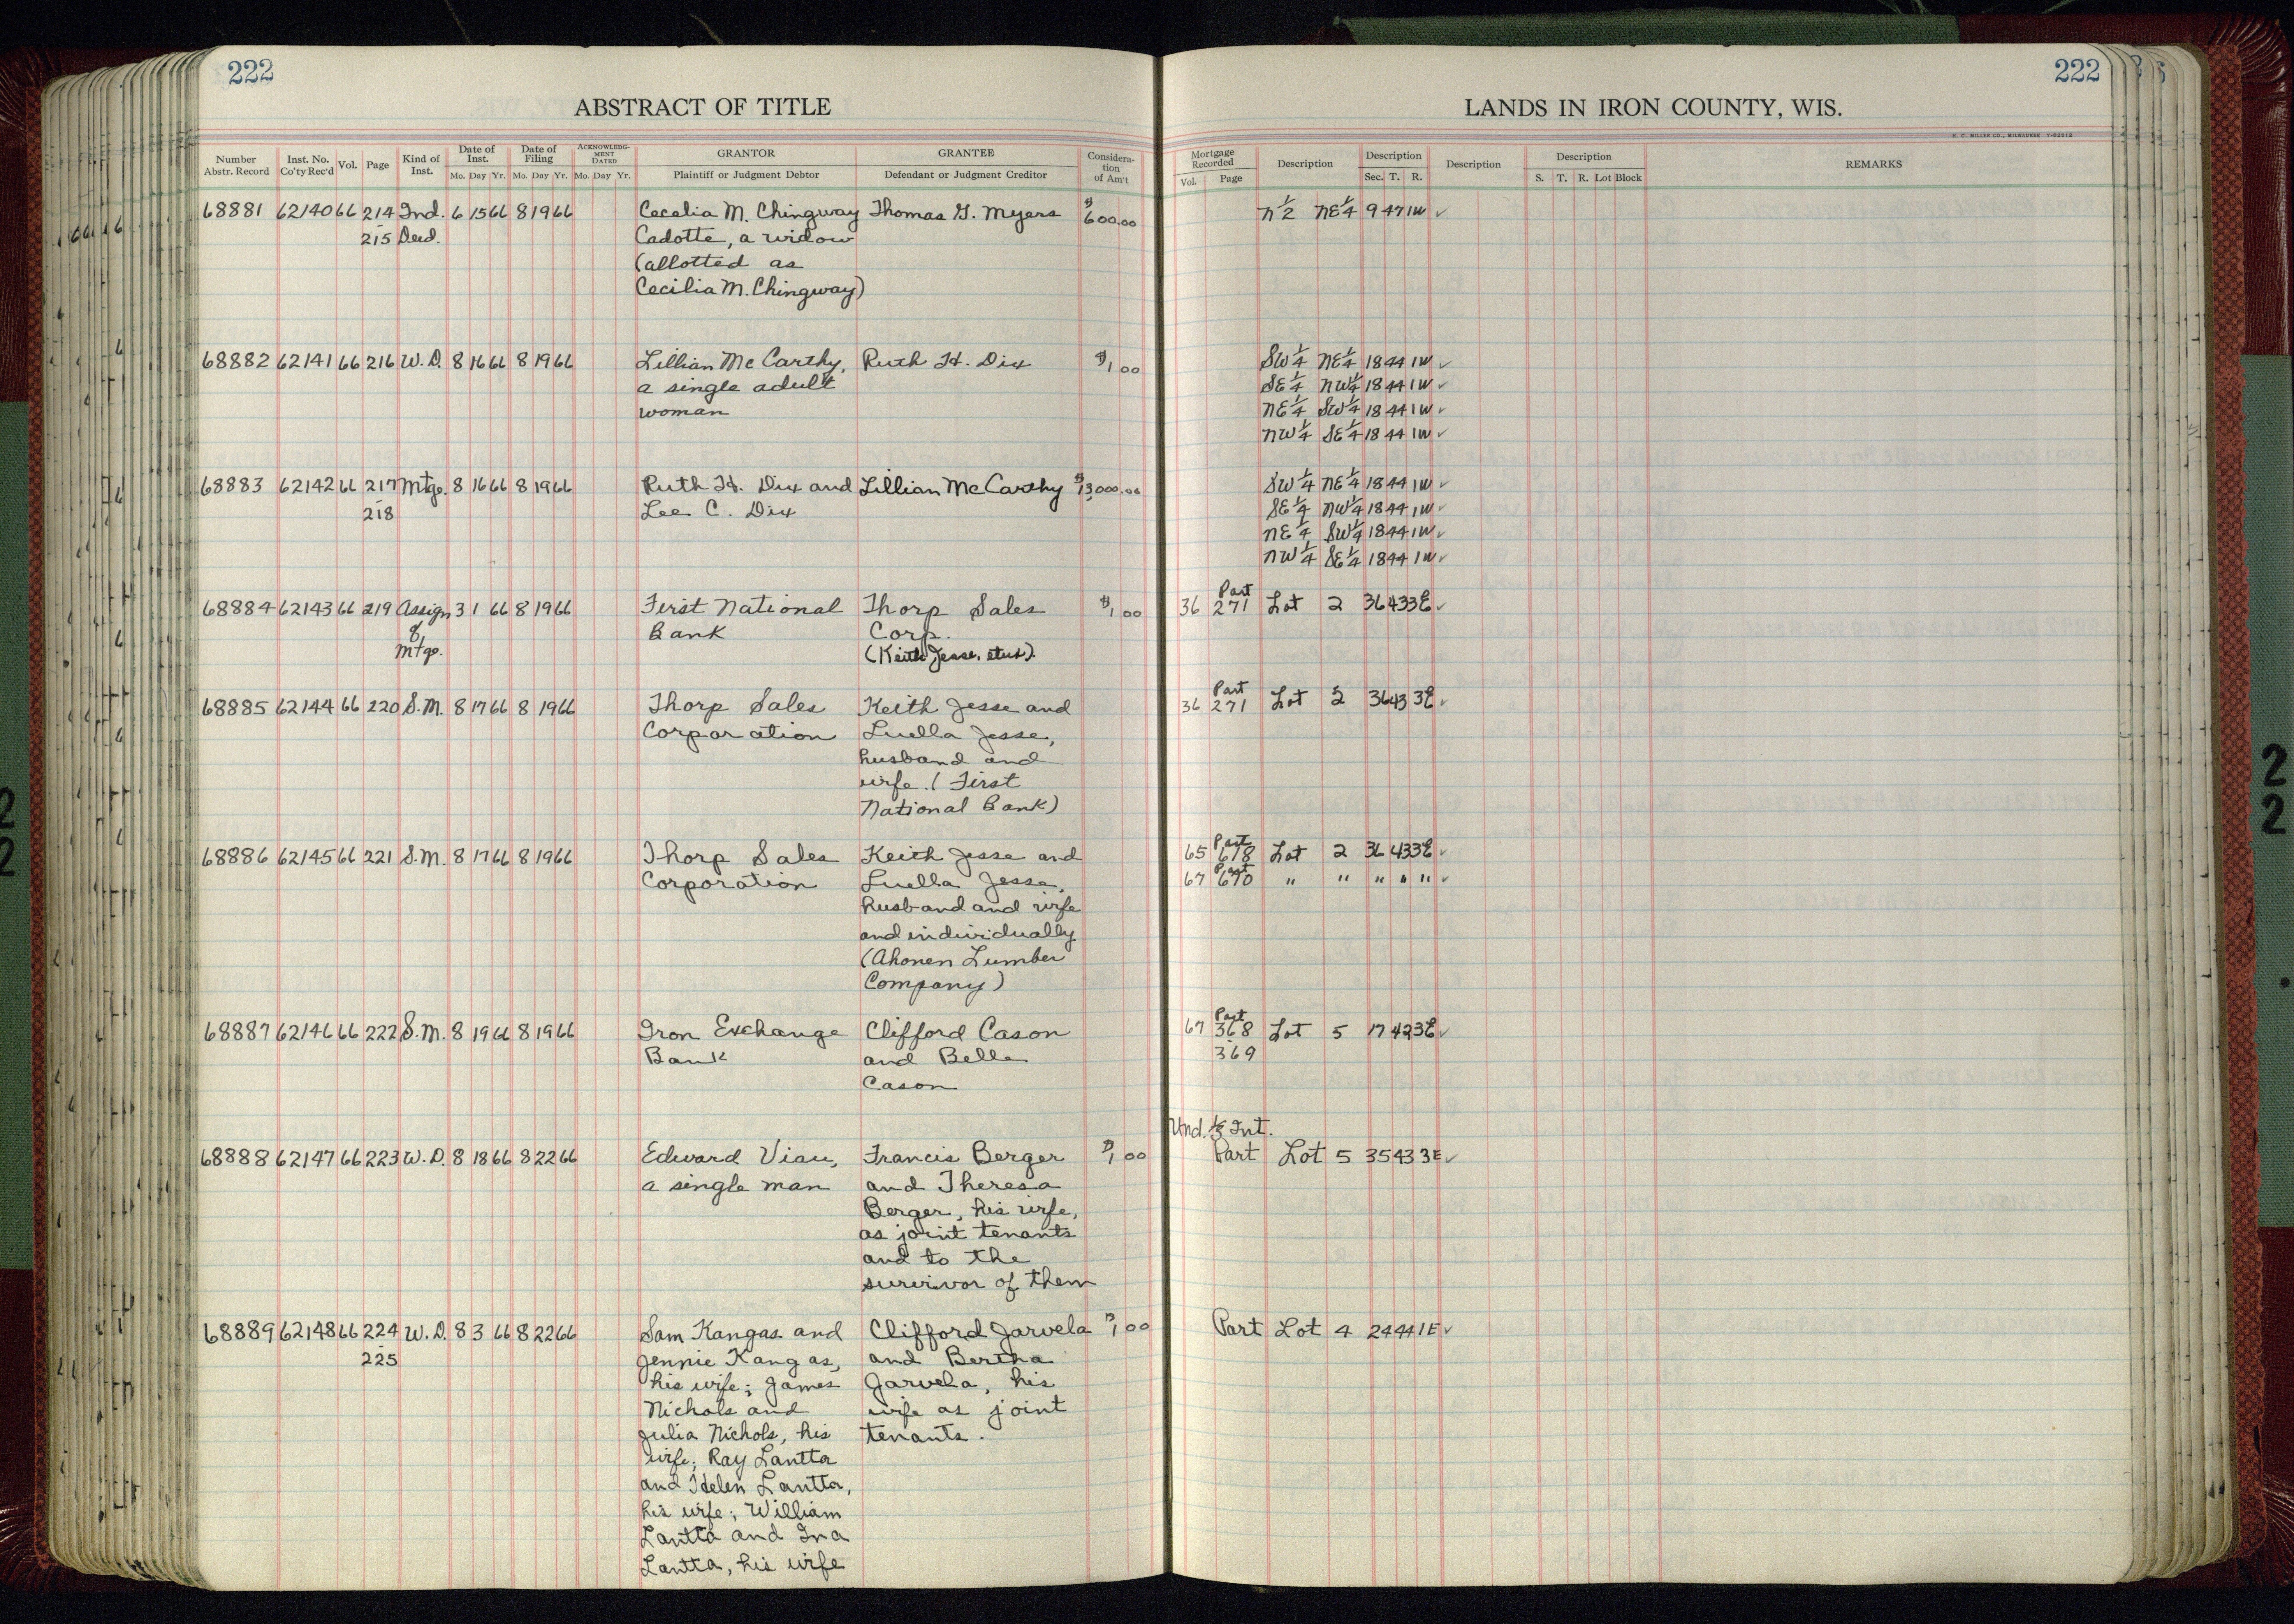 222
222
ABSTRACT OF TITLE
LANDS IN IRON COUNTY, WIS.
H. C. MILLER CO., MILWAUKEE
Number Abstr. Record Inst. No. Co'ty Rec'd Vol. Page Kind of Inst. Date of Inst. Mo. Day Yr. Date of Filing Mo. Day Yr. ACKNOWLEDGMENT DATED Mo. Day Yr. GRANTOR Plaintiff or Judgment Debtor GRANTEE Defendant or Judgment Creditor Consideration of Am't
Mortgage Recorded Vol. Page Description Description Sec. T. R. Description Description S. T. R. Lot Block REMARKS
68881 62140 66 214 Ind. 6 15 66 8 19 66 Cecelia M. Chingway Thomas G. Myers $600.00 N½ NE¼ 9 47 1W ✓
215 Deed. Cadotte, a widow
(allotted as
Cecilia M. Chingway)
68882 62141 66 216 W.D. 8 16 66 8 19 66 Lillian McCarthy, Ruth H. Dix $1.00 SW¼ NE¼ 18 44 1W ✓
a single adult SE¼ NW¼ 18 44 1W ✓
woman NE¼ SW¼ 18 44 1W ✓
NW¼ SE¼ 18 44 1W ✓
68883 62142 66 217 Mtge. 8 16 66 8 19 66 Ruth H. Dix and Lillian McCarthy $13,000.00 SW¼ NE¼ 18 44 1W ✓
218 Lee C. Dix SE¼ NW¼ 18 44 1W ✓
NE¼ SW¼ 18 44 1W ✓
NW¼ SE¼ 18 44 1W ✓
Part
68884 62143 66 219 Assign 3 1 66 8 19 66 First National Thorp Sales $1.00 36 271 Lot 2 36 43 3E ✓
of Bank Corp.
Mtge. (Keith Jesse, etux).
Part
68885 62144 66 220 S.M. 8 17 66 8 19 66 Thorp Sales Keith Jesse and 36 271 Lot 2 36 43 3E ✓
Corporation Luella Jesse,
husband and
wife. (First
National Bank)
Part
68886 62145 66 221 S.M. 8 17 66 8 19 66 Thorp Sales Keith Jesse and 65 678 Lot 2 36 43 3E ✓
Part
Corporation Luella Jesse, 67 670 " " " " " ✓
husband and wife
and individually
(Ahonen Lumber
Company)
Part
68887 62146 66 222 S.M. 8 19 66 8 19 66 Iron Exchange Clifford Cason 67 368 Lot 5 17 42 3E ✓
Bank and Belle 369
Cason
Und. ⅓ Int.
68888 62147 66 223 W.D. 8 18 66 8 22 66 Edward Viau, Francis Berger $1.00 Part Lot 5 35 43 3E ✓
a single man and Theresa
Berger, his wife,
as joint tenants
and to the
survivor of them
68889 62148 66 224 W.D. 8 3 66 8 22 66 Sam Kangas and Clifford Jarvela $1.00 Part Lot 4 24 44 1E ✓
225 Jennie Kangas, and Bertha
his wife; James Jarvela, his
Nichols and wife as joint
Julia Nichols, his tenants.
wife; Ray Lantta
and Helen Lantta,
his wife; William
Lantta and Ina
Lantta, his wife